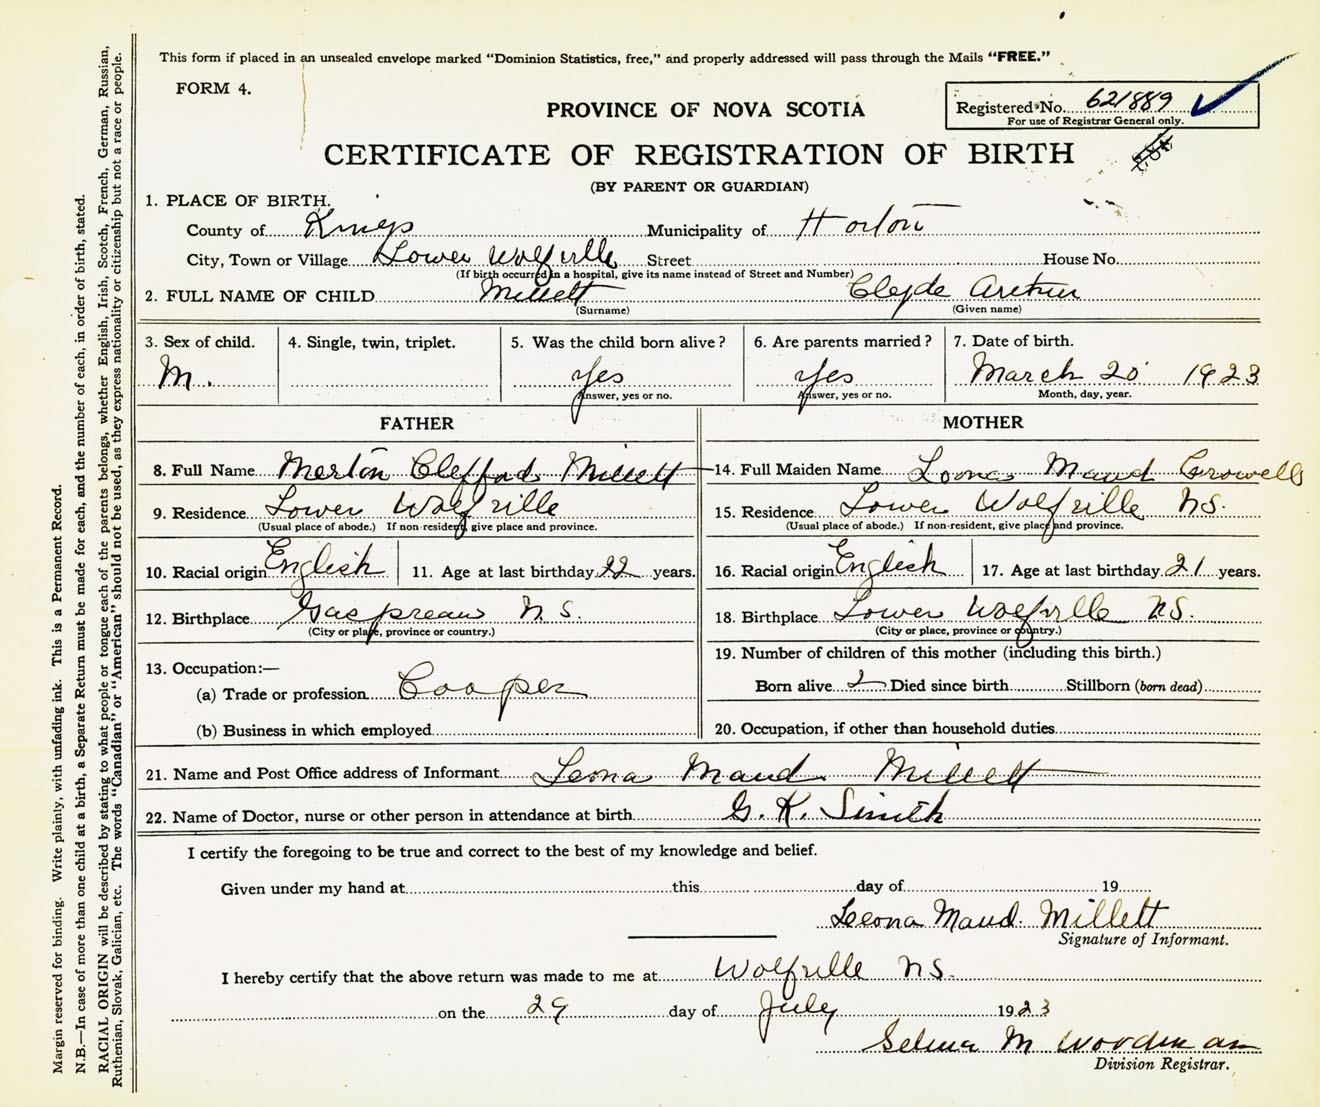 This form if placed in an unsealed envelope marked “Dominion Statistics, free,” and properly addressed will pass through the Mails “FREE.”
FORM 4.
PROVINCE OF NOVA SCOTIA
Registered No. 621889
For use of Registrar General only.
CERTIFICATE OF REGISTRATION OF BIRTH
(BY PARENT OR GUARDIAN)
1. PLACE OF BIRTH.
County of Kings Municipality of Horton
City, Town or Village Lower Wolfville Street House No.
(If birth occurred in a hospital, give its name instead of Street and Number)
2. FULL NAME OF CHILD Millett Clyde Arthur
(Surname) (Given name)
3. Sex of child. 4. Single, twin, triplet. 5. Was the child born alive? 6. Are parents married? 7. Date of birth.
M. Yes Yes March 20 1923
Answer, yes or no. Answer, yes or no. Month, day, year.
FATHER MOTHER
8. Full Name Merton Clefford Millett 14. Full Maiden Name Leona Maud Crowell
9. Residence Lower Wolfville 15. Residence Lower Wolfville N.S.
(Usual place of abode.) If non-resident, give place and province. (Usual place of abode.) If non-resident, give place and province.
10. Racial origin English 11. Age at last birthday 22 years. 16. Racial origin English 17. Age at last birthday 21 years.
12. Birthplace Gaspreau N.S. 18. Birthplace Lower Wolfville N.S.
(City or place, province or country.) (City or place, province or country.)
13. Occupation:— 19. Number of children of this mother (including this birth.)
(a) Trade or profession Cooper Born alive 2 Died since birth Stillborn (born dead)
(b) Business in which employed 20. Occupation, if other than household duties
21. Name and Post Office address of Informant Leona Maud Millett
22. Name of Doctor, nurse or other person in attendance at birth G. K. Smith
I certify the foregoing to be true and correct to the best of my knowledge and belief.
Given under my hand at this day of 19
Leona Maud Millett
Signature of Informant.
I hereby certify that the above return was made to me at Wolfville N.S.
on the 29 day of July 1923
Selma M Woodman
Division Registrar.
Margin reserved for binding. Write plainly, with unfading ink. This is a Permanent Record.
N.B.—In case of more than one child at a birth, a Separate Return must be made for each, and the number of each, in order of birth, stated.
RACIAL ORIGIN will be described by stating to what people or tongue each of the parents belongs, whether English, Irish, Scotch, French, German, Russian,
Ruthenian, Slovak, Galician, etc. The words “Canadian” or “American” should not be used, as they express nationality or citizenship but not a race or people.